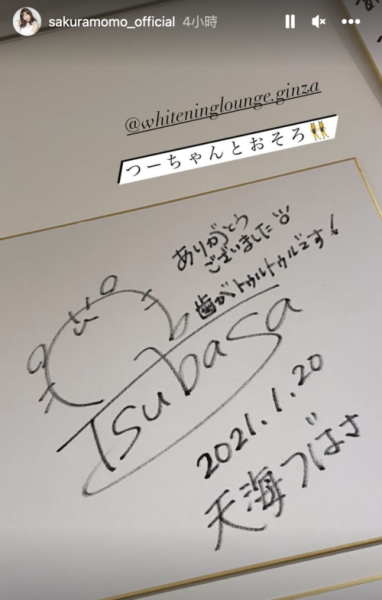 sakuramomo_official 4小時
@whiteninglounge.ginza
つーちゃんとおそろ👯
ありがとう
ございました
歯がトゥルトゥルです!
Tsubasa
2021.1.20
天海つばさ